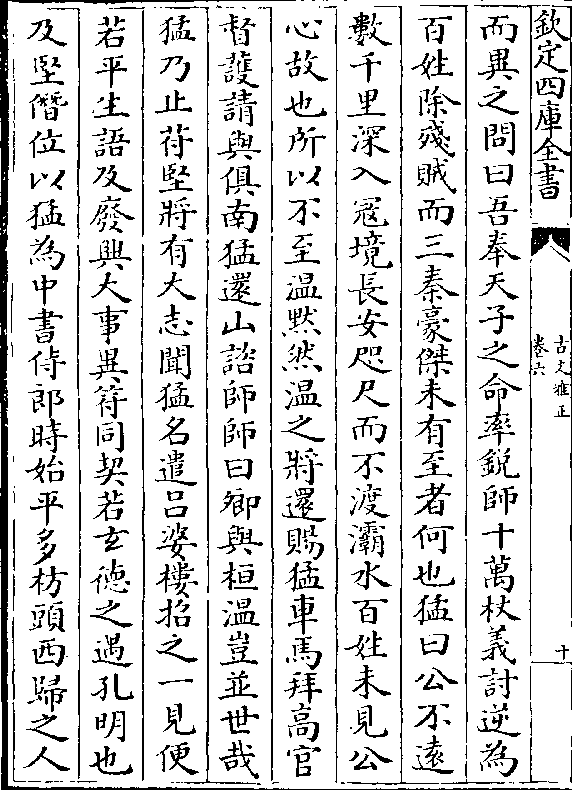 欽定四庫全書
古文雅正
卷六
十
而異之問曰吾奉天子之命率鋭師十萬杖義討逆為
百姓除殘賊而三秦豪傑未有至者何也猛曰公不遠
數千里深入寇境長安咫尺而不渡灞水百姓未見公
心故也所以不至温黙然温之將還賜猛車馬拜高官
督護請與俱南猛還山諮師師曰卿與桓温豈並世哉
猛乃止苻堅將有大志聞猛名遣吕婆樓招之一見便
若平生語及廢興大事異符同契若玄德之遇孔明也
及堅僭位以猛為中書侍郎時始平多枋頭西歸之人